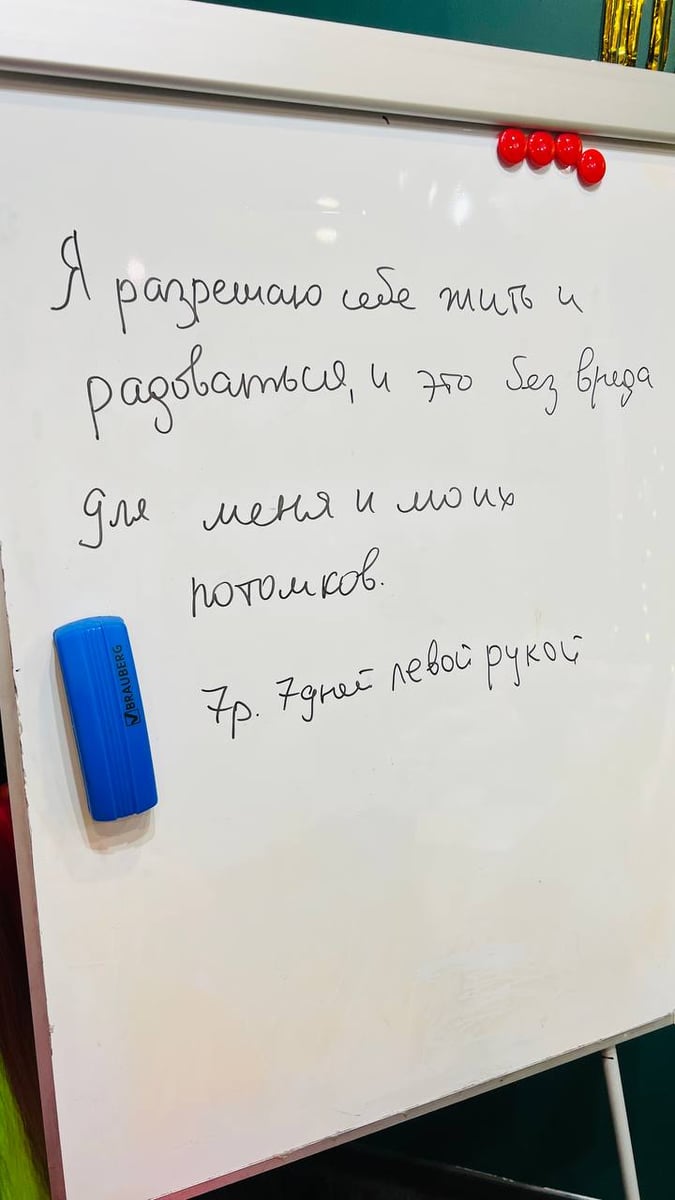 Я разрешаю себе жить и
радоваться, и это без вреда
для меня и моих
потомков.
7р. 7дней левой рукой
BRAUBERG